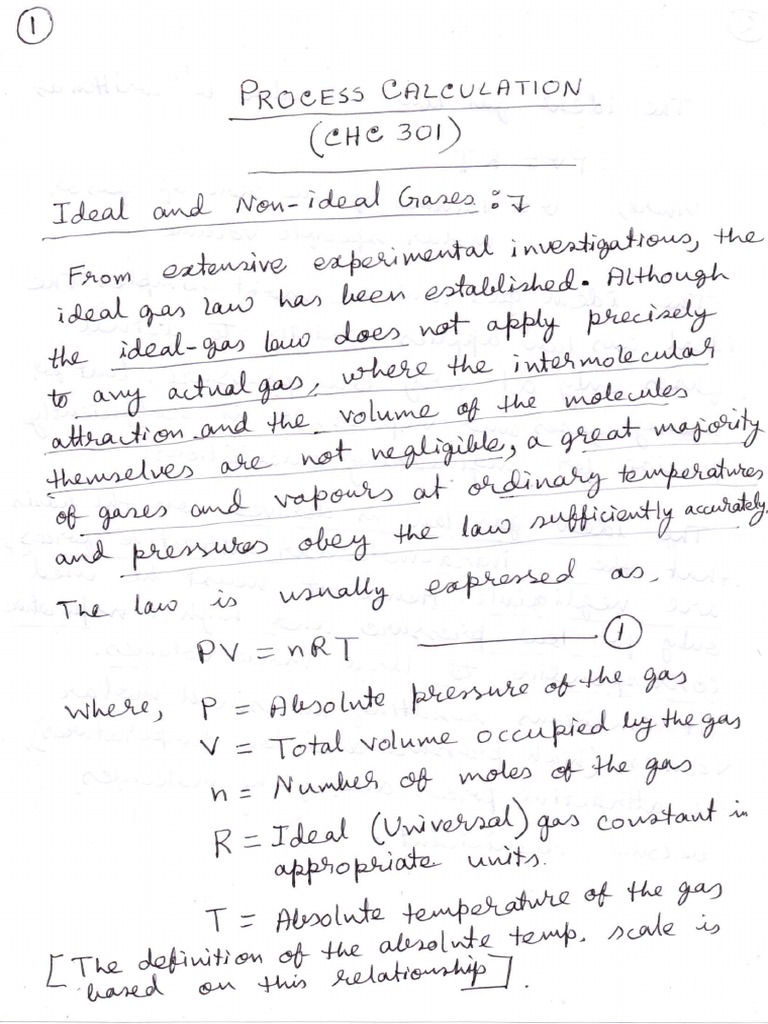 1
PROCESS CALCULATION
(CHC 301)
Ideal and Non-ideal Gases :↓
From extensive experimental investigations, the
ideal gas law has been established. Although
the ideal-gas law does not apply precisely
to any actual gas, where the intermolecular
attraction and the volume of the molecules
themselves are not negligible, a great majority
of gases and vapours at ordinary temperatures
and pressures obey the law sufficiently accurately.
The law is usually expressed as,
PV = nRT ——— 1
where, P = Absolute pressure of the gas
V = Total volume occupied by the gas
n = Number of moles of the gas
R = Ideal (Universal) gas constant in
appropriate units.
T = Absolute temperature of the gas
[The definition of the absolute temp. scale is
based on this relationship].